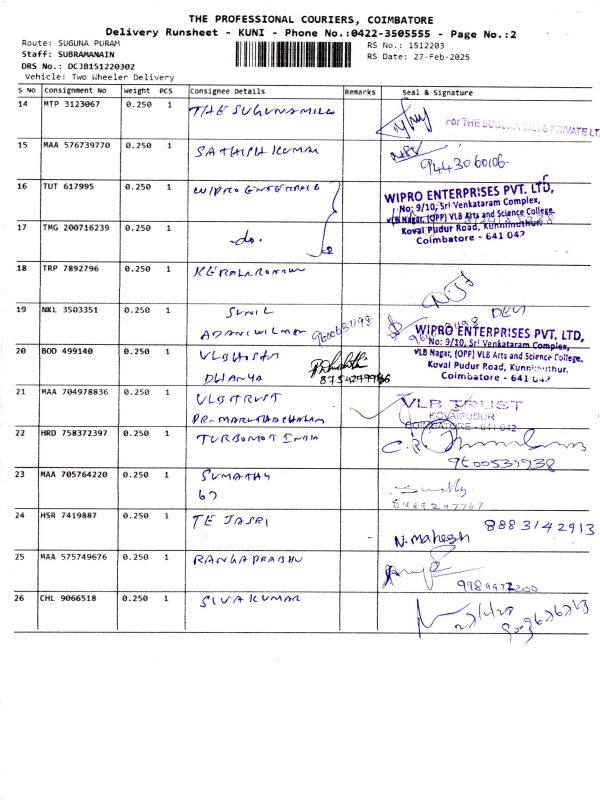 THE PROFESSIONAL COURIERS, COIMBATORE
Delivery Runsheet - KUNI - Phone No.:0422-3505555 - Page No.:2
Route: SUGUNA PURAM
RS No.: 1512203
Staff: SUBRAMANAIN
RS Date: 27-Feb-2025
DRS No.: DCJB151220302
Vehicle: Two Wheeler Delivery
S No Consignment No Weight PCS Consignee Details Remarks Seal & Signature
14 MTP 3123067 0.250 1 THE SUGUNA MILLS
For THE SUGUNA MILLS PRIVATE LT
15 MAA 576739770 0.250 1 SATHISH KUMAR
9443060106
16 TUT 617995 0.250 1 WIPRO
WIPRO ENTERPRISES PVT. LTD,
No: 9/10, Sri Venkataram Complex,
VLB Nagar, (OPP) VLB Arts and Science College.
Kovai Pudur Road, Kunnimuthur.
Coimbatore - 641 042
17 TMG 200716239 0.250 1 -do.
18 TRP 7892796 0.250 1 KERALA
19 NKL 3503351 0.250 1 SUNIL
DEVI
ADANI WILMAR 9600631198
WIPRO ENTERPRISES PVT. LTD,
No: 9/10, Sri Venkataram Complex,
VLB Nagar, (OPP) VLB Arts and Science College.
Kovai Pudur Road, Kunnimuthur.
Coimbatore - 641 042
20 BOD 499140 0.250 1 VLB
DHANYA
21 MAA 704978836 0.250 1 VLB TRUST
VLB TRUST
KOVAIPUDUR
COIMBATORE - 641 042
DR. MARUTHACHALAM
22 HRD 758372397 0.250 1 TURBOMOT INDIA
9500531938
23 MAA 705764220 0.250 1 SUMATHY
67
24 HSR 7419887 0.250 1 TEJASRI
N. Mahesh 8883142913
25 MAA 575749676 0.250 1 RANGAPRABHU
9989972200
26 CHL 9066518 0.250 1 SIVAKUMAR